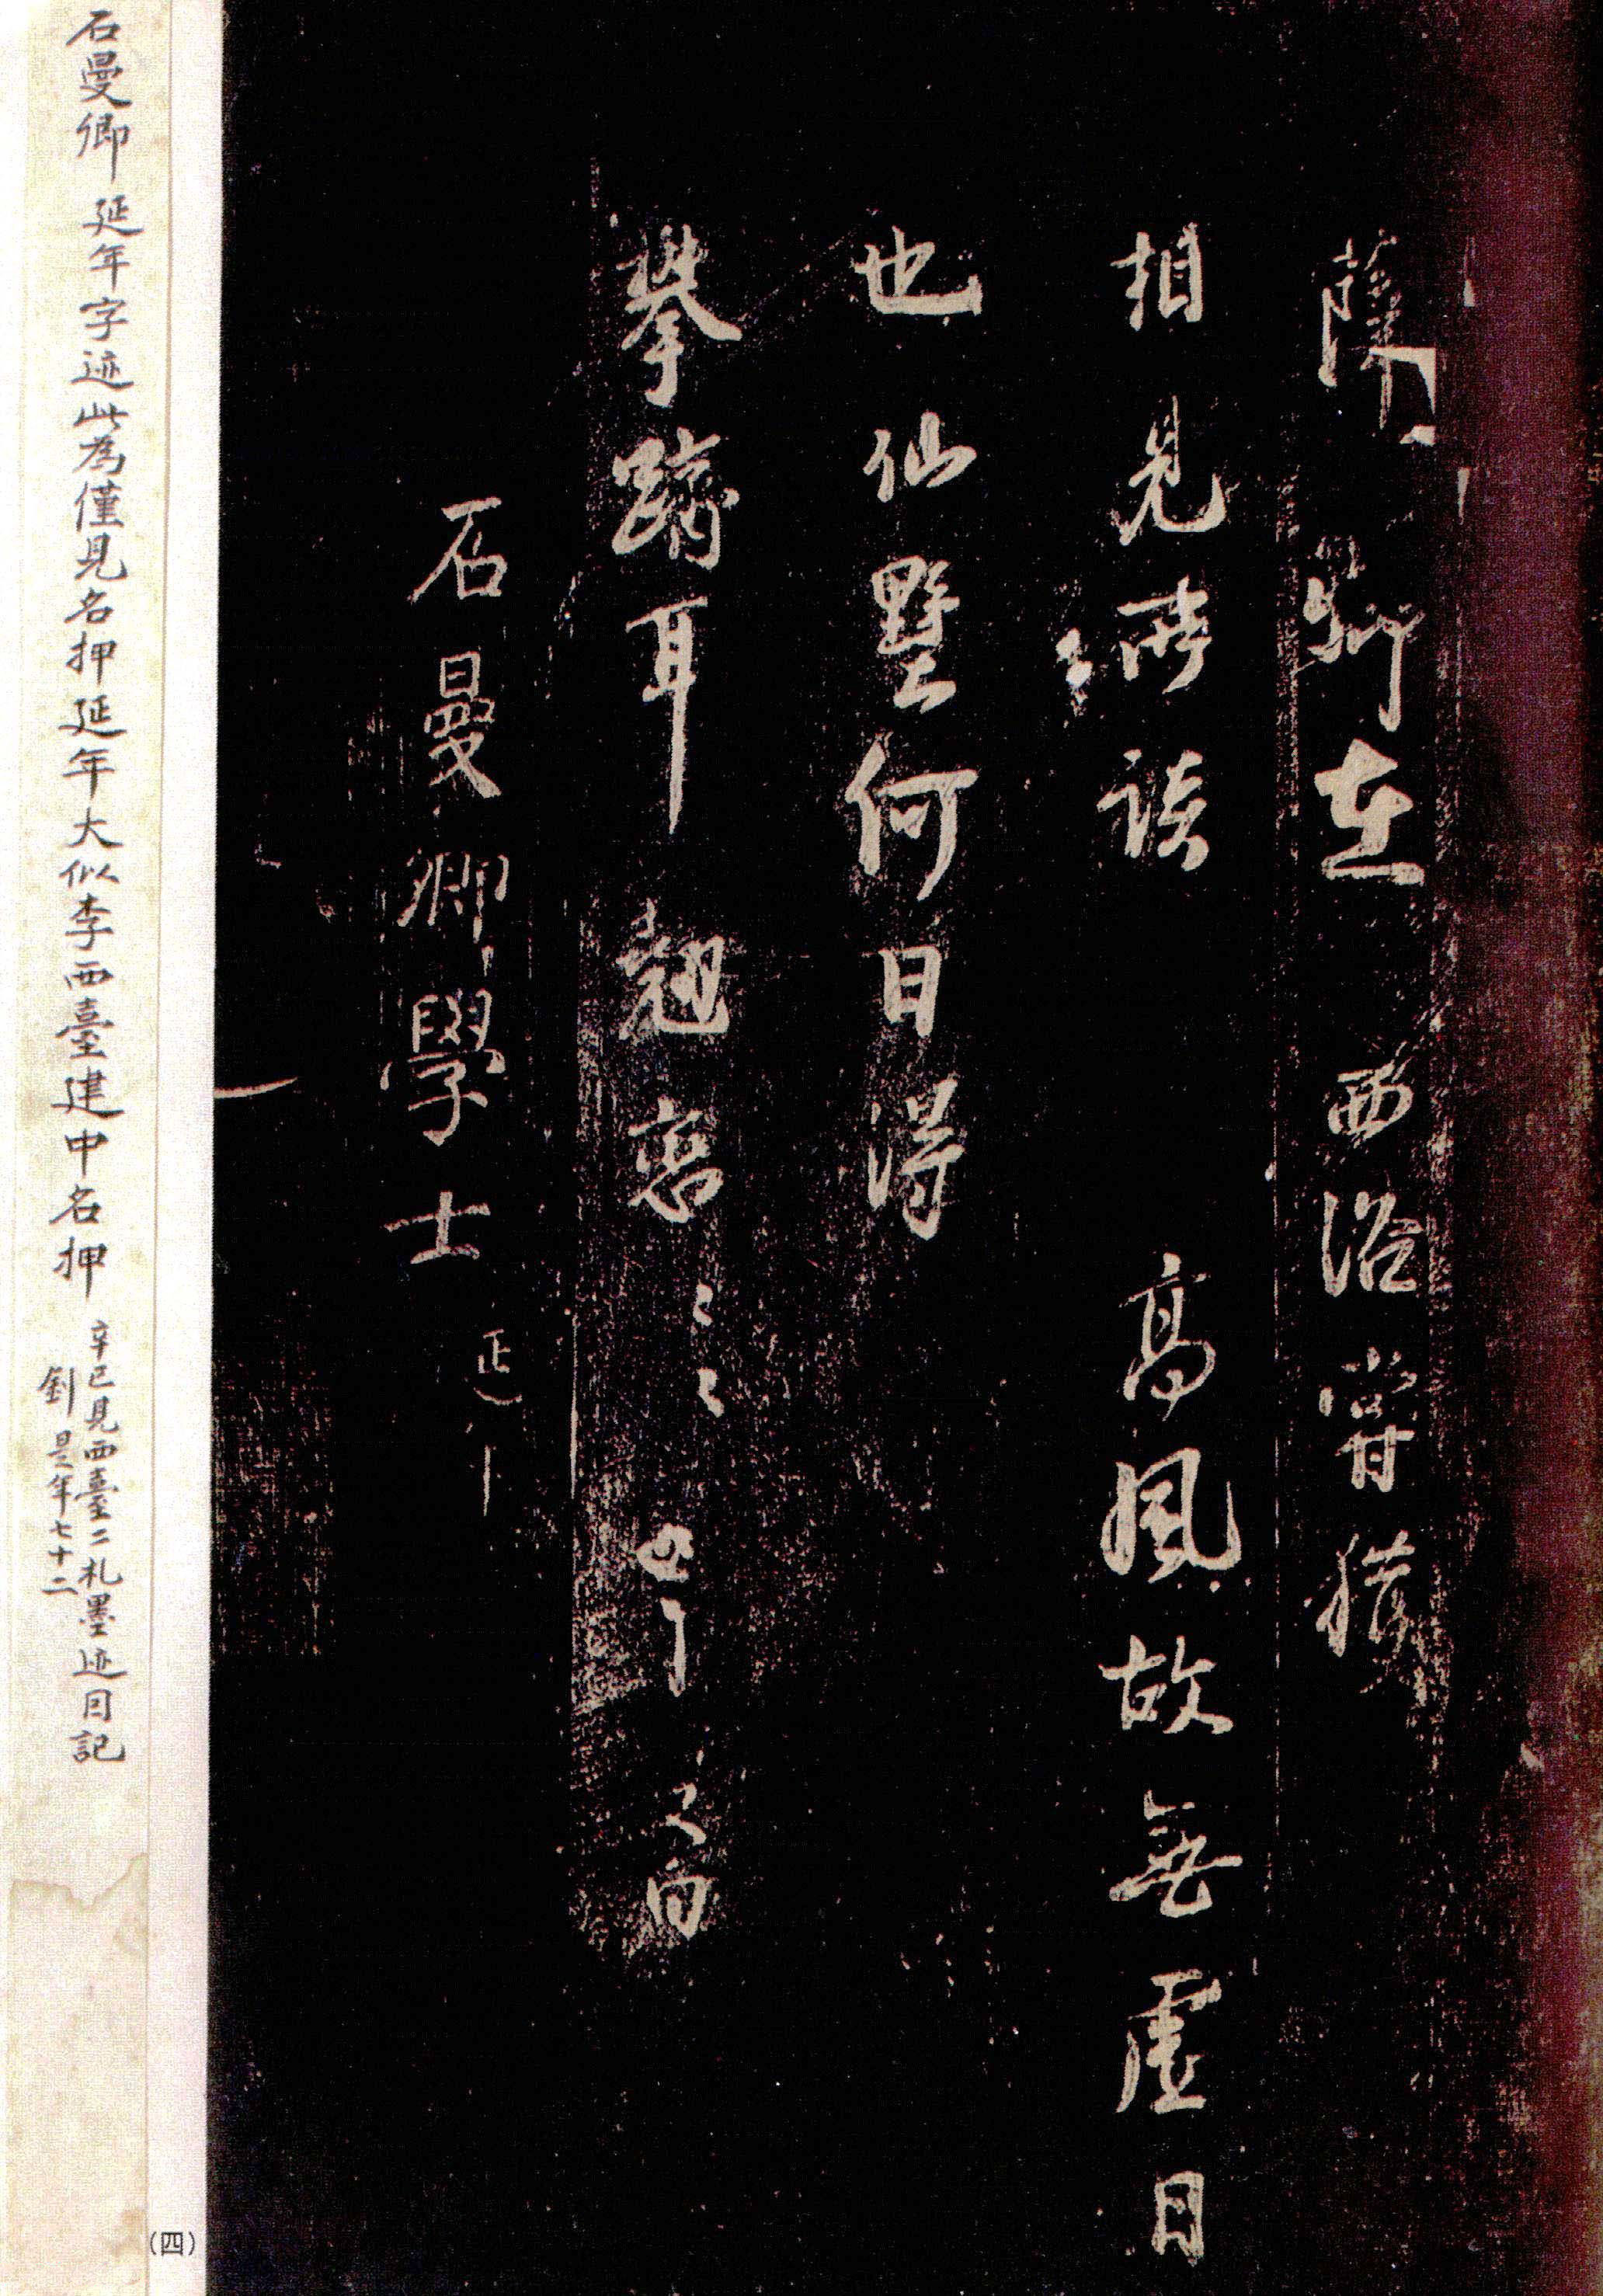 薛卿在 西洛嘗獲
相見所談 高風故無虛日
也仙墅何日得
攀躋耳翹企
石曼卿學士
石曼卿延年字迹此為僅見名押延年大似李西臺建中名押
辛巳見西臺二札墨迹因記
釗是年七十二
(四)